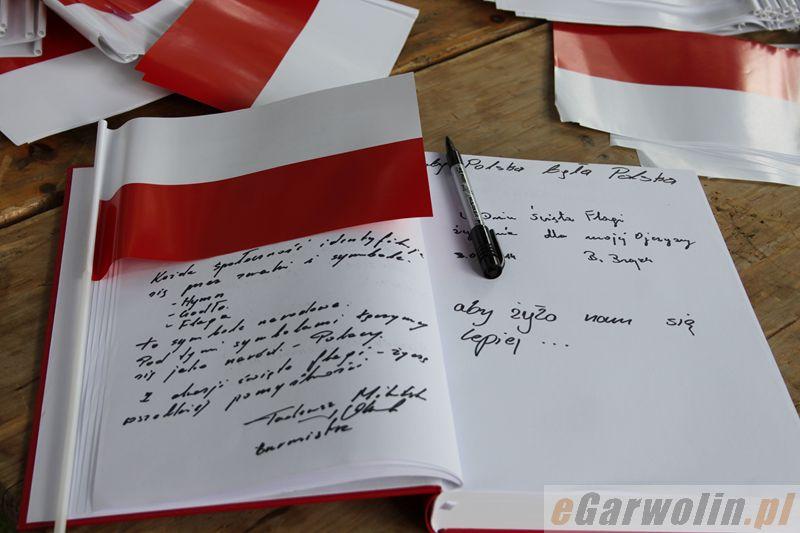 Każda społeczność identyfikuje
się przez znaki i symbole
- Hymn
- Godło
- Flaga
to symbole narodowe.
Pod tymi symbolami łączymy
się jako naród - Polacy
Z okazji święta flagi - życzę
wszelkiej pomyślności
Tadeusz
burmistrz
Polska była Polska
W Dniu Święta Flagi
dla mojej Ojczyzny
B.
aby żyło nam się
lepiej ...
eGarwolin.pl